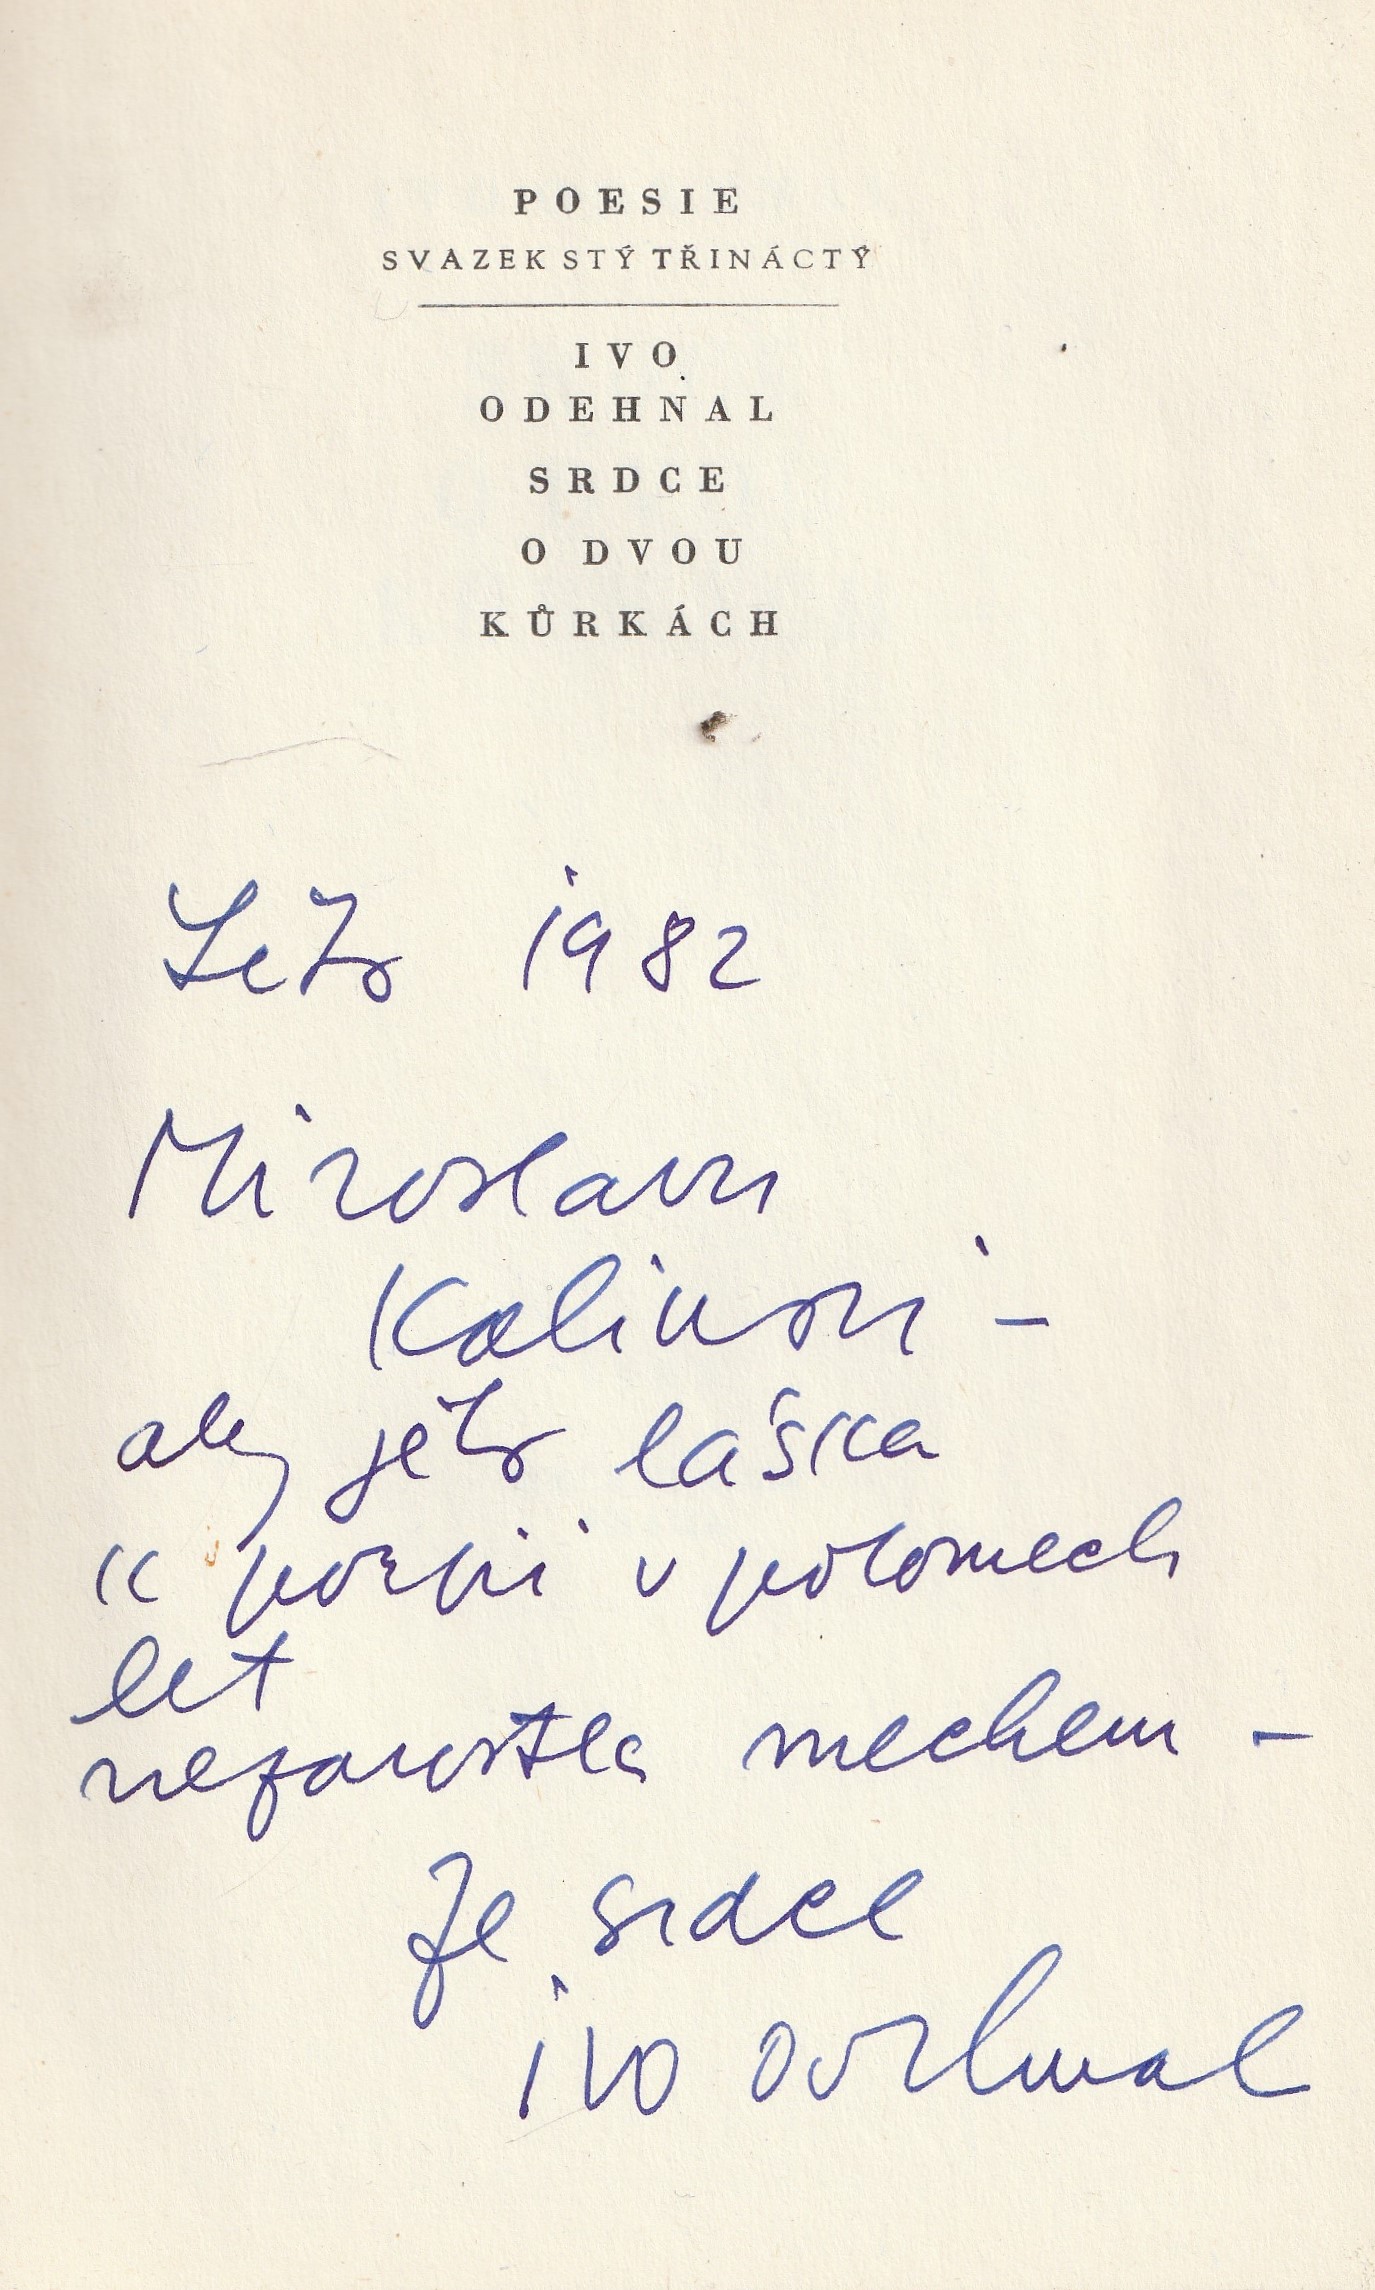 POESIE
SVAZEK STÝ TŘINÁCTÝ
IVO
ODEHNAL
SRDCE
O DVOU
KŮRKÁCH
Léto 1982
Miroslavu
Kalinovi –
aby jeho láska
k poezii v polomech
let
nezarostla mechem –
Ze srdce
Ivo Odehnal